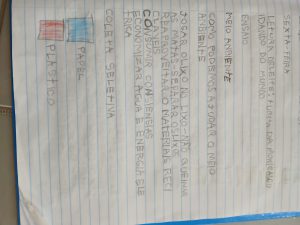 SEXTA-FEIRA
LEITURA DELEITE: TURMA DA MÔNICA EM
DO MUNDO
ENSAIO
MEIO AMBIENTE
COMO PODEMOS AJUDAR O MEIO
AMBIENTE
JOGAR O LIXO NO LIXO NÃO QUEIMA
AS MATAS SEPARAR OS LIXOS
REAPROVEITAR O MATERIAIS RECI
CONSUMIR CONSIENCIAS
ECONOMIZAR AGUA E ENERGIA ELE
TRICA
COLETA SELETIVA
PAPEL
PLASTICO